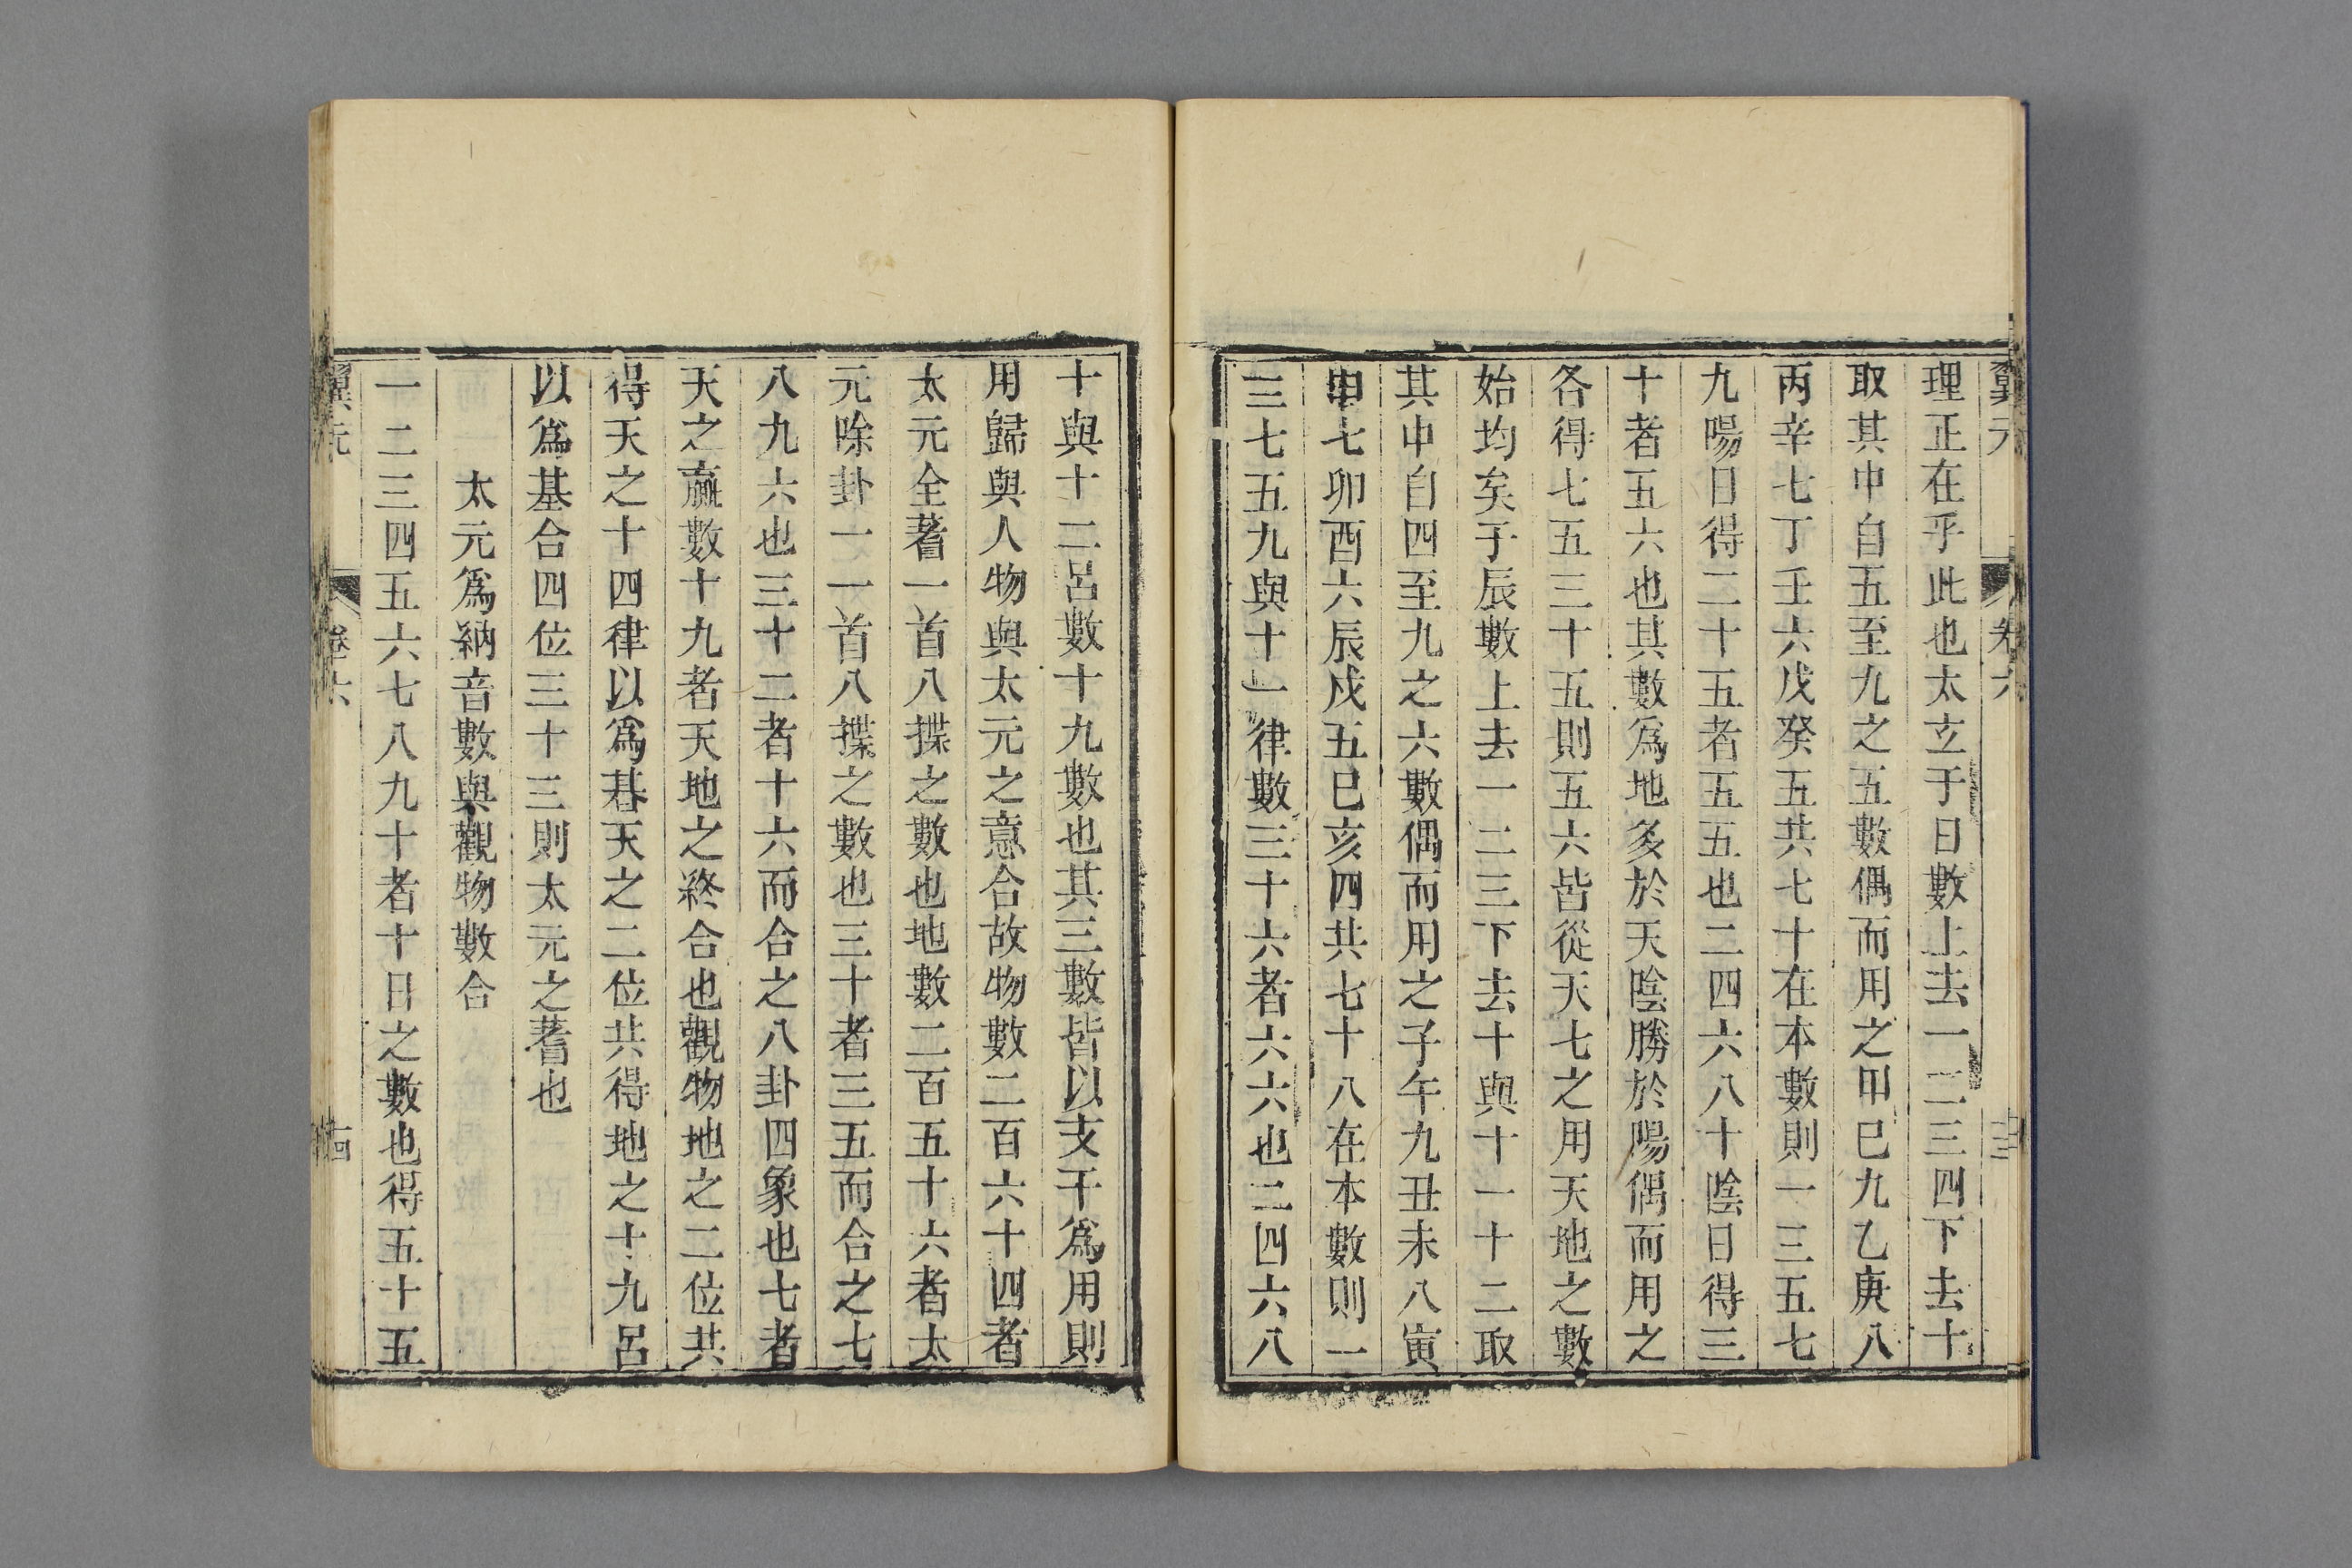 翼元 卷六 十三
理正在乎此也太玄于日數上去一二三四下去十
取其中自五至九之五數偶而用之甲巳九乙庚八
丙辛七丁壬六戊癸五共七十在本數則一三五七
九陽日得二十五者五五也二四六八十陰日得三
十者五六也其數爲地多於天陰勝於陽偶而用之
各得七五三十五則五六皆從天七之用天地之數
始均矣于辰數上去一二三下去十與十一十二取
其中自四至九之六數偶而用之子午九丑未八寅
申七卯酉六辰戌五巳亥四共七十八在本數則一
三七五九與十一律數三十六者六六也二四六八
十與十二呂數十九數也其三數皆以支干爲用則
用歸與人物與太元之意合故物數二百六十四者
太元全蓍一首八揲之數也地數二百五十六者太
元除卦一一首八揲之數也三十者三五而合之七
八九六也三十二者十六而合之八卦四象也七者
天之蠃數十九者天地之終合也觀物地之二位共
得天之十四律以爲朞天之二位共得地之十九呂
以爲基合四位三十三則太元之蓍也
太元爲納音數與觀物數合
一二三四五六七八九十者十日之數也得五十五
翼元 卷六 十四